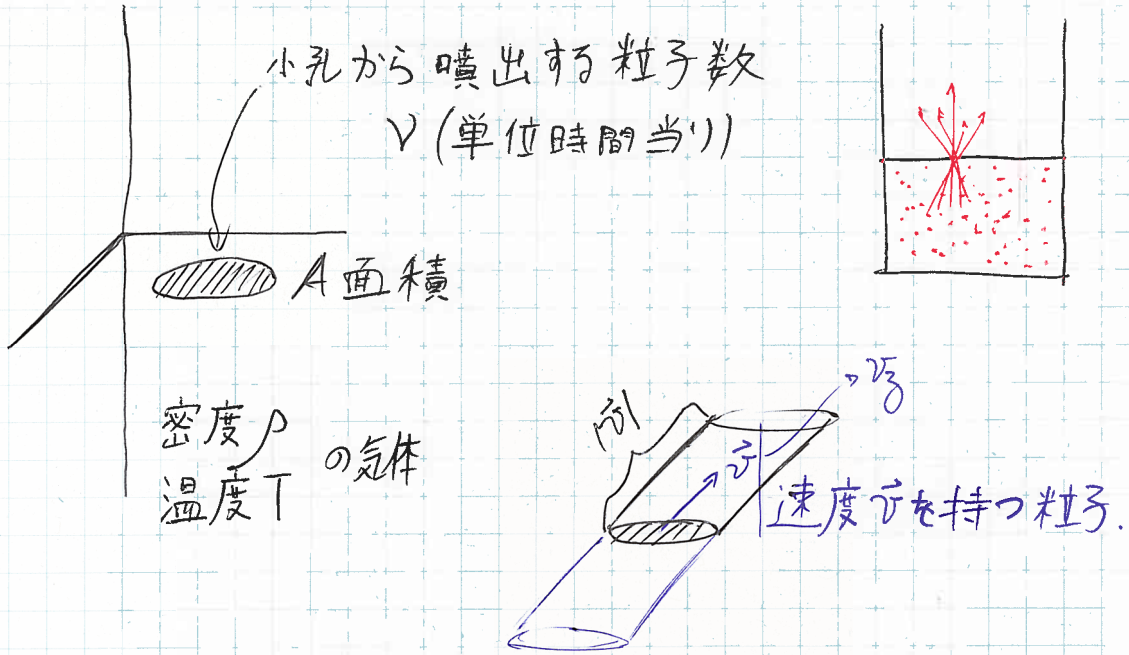 小孔から噴出する粒子数
ν (単位時間当り)
A 面積
密度ρ
温度T
の気体
|v⃗|
v⃗
v_z
速度v⃗を持つ粒子.